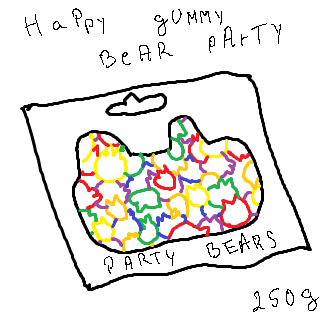 HaPPy gUMMY
BeAR pArTY
PARTY BEARS
250g